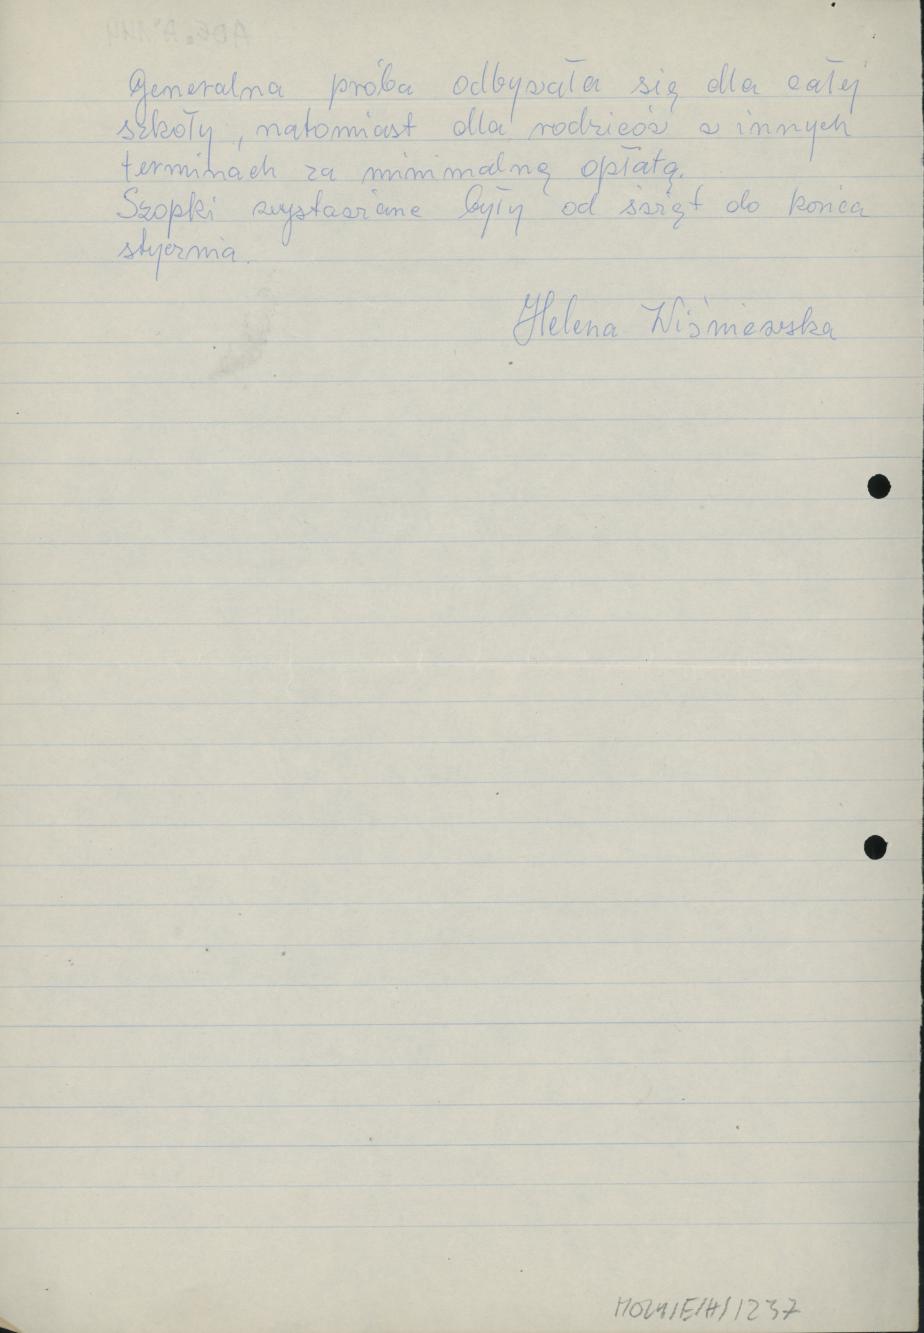 Generalna próba odbywała się dla całej
szkoły, natomiast dla rodziców w innych
terminach za minimalną opłatą.
Szopki wystawiane były od świąt do końca
stycznia.
Helena Wiśniewska